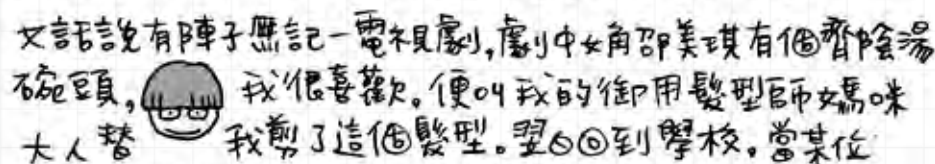 又話說有陣子無記一電視劇,劇中女角邵美琪有個齊陰湯
碗頭,我很喜歡。便叫我的御用髮型師媽咪
大人替我剪了這個髮型。翌日回到學校。當某位